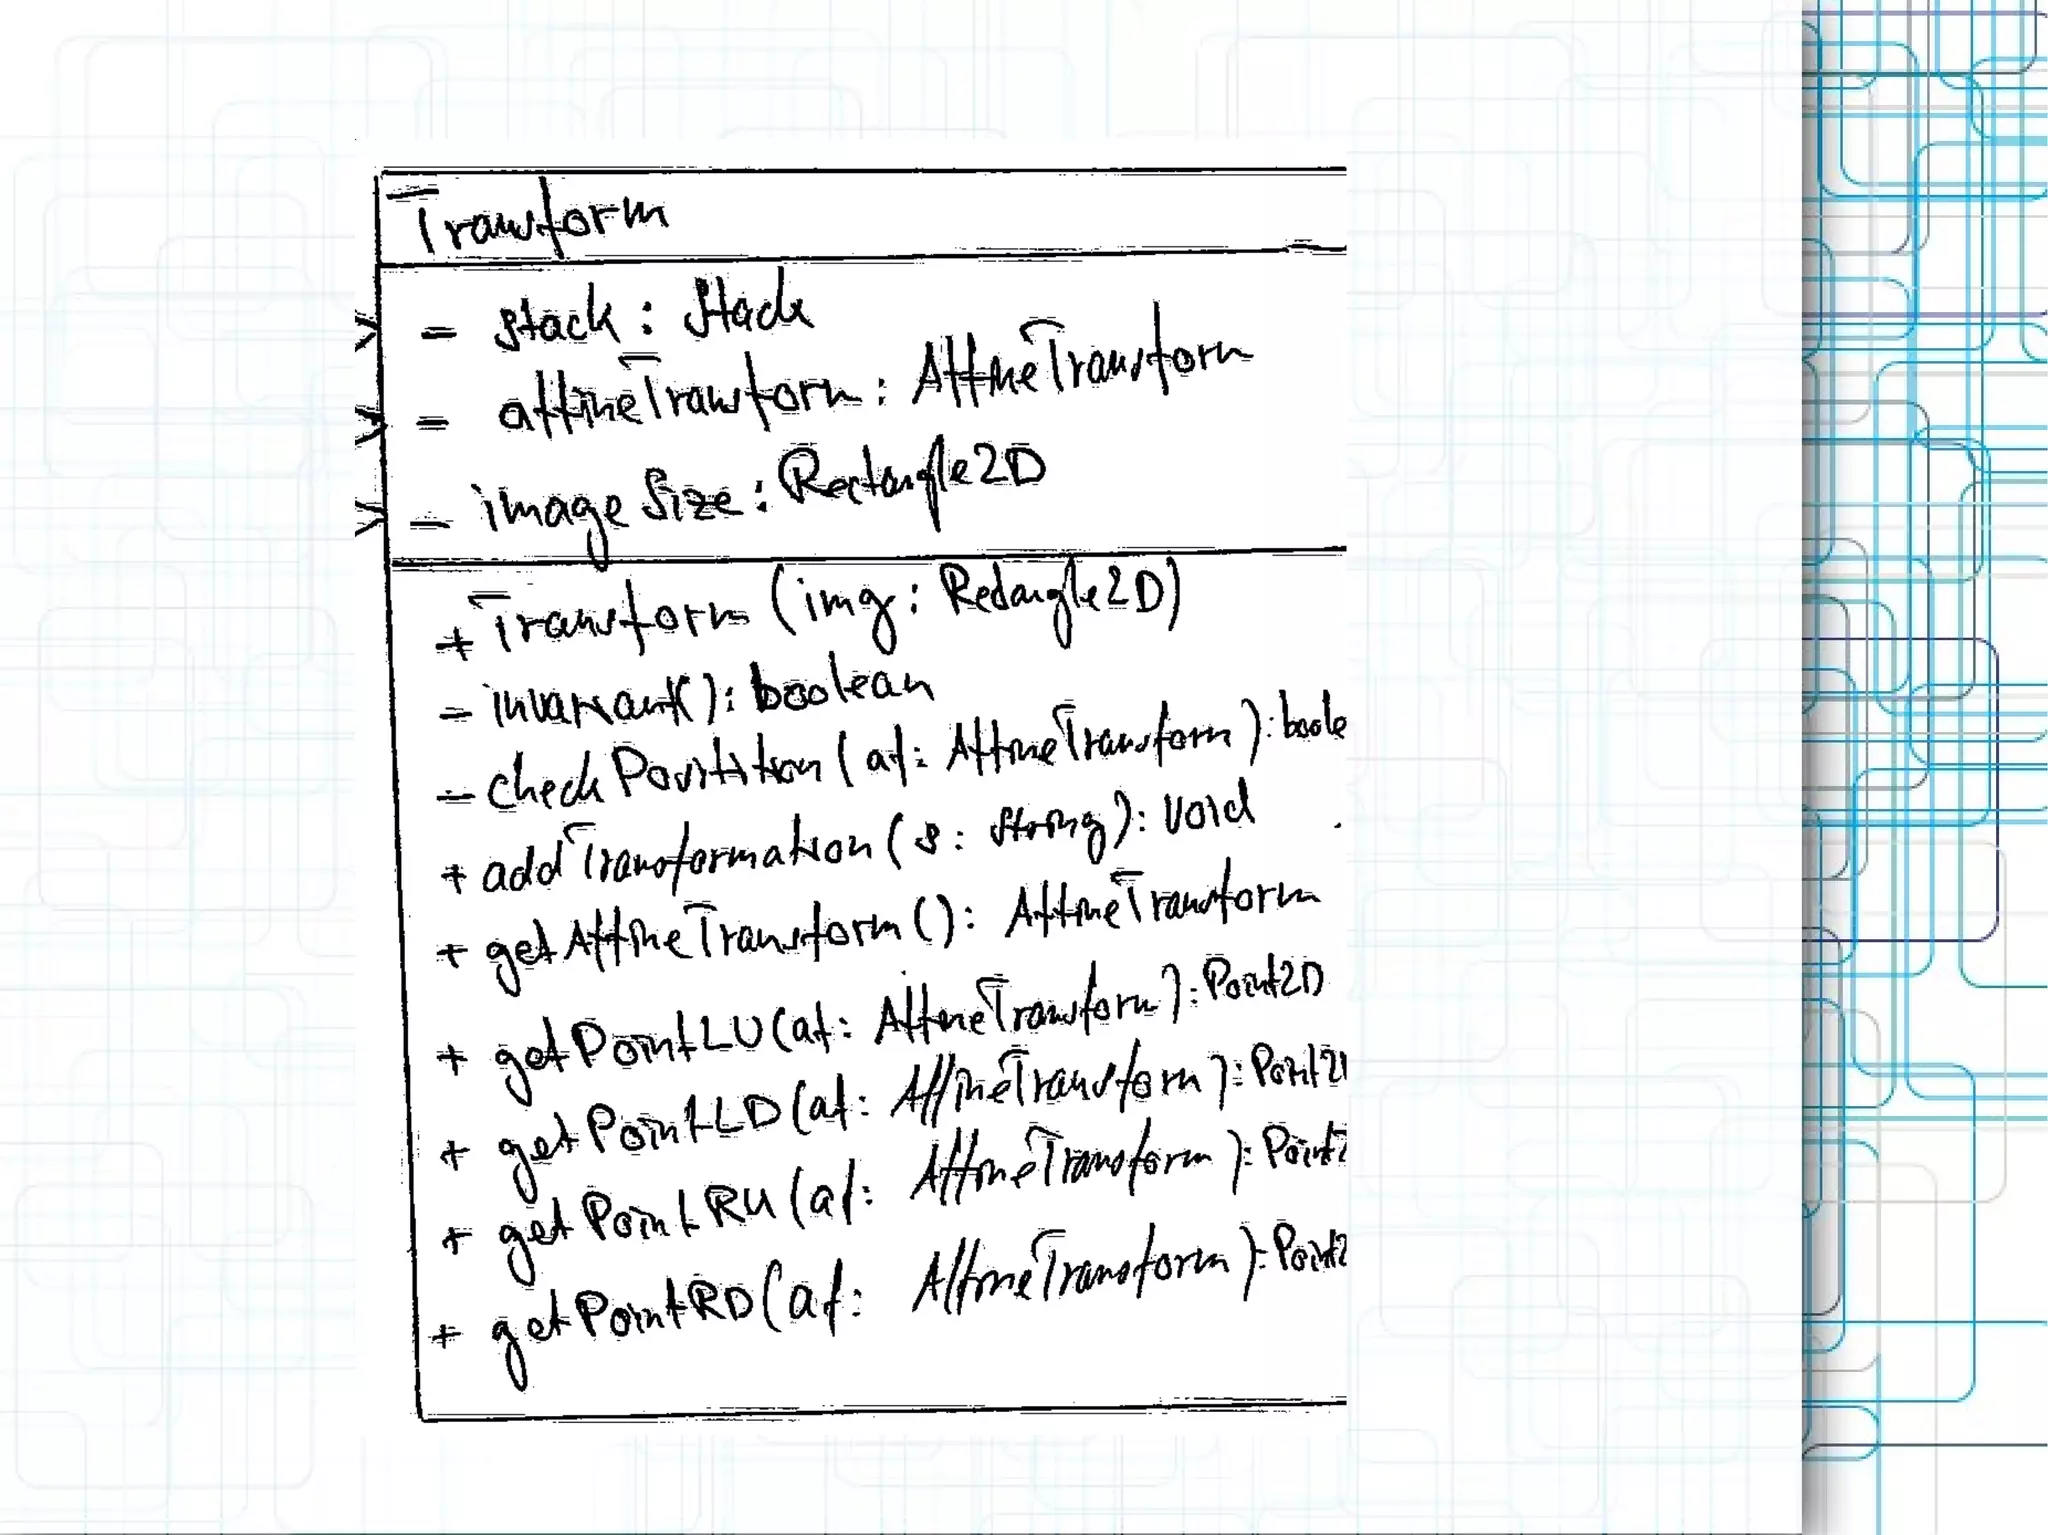 Transform
- stack : Stack
- affineTransform : AffineTransform
- imageSize : Rectangle2D
+ Transform (img : Rectangle2D)
- invariant() : boolean
- check (at : AffineTransform) : boole
+ addTransformation (s : String) : void
+ getAffineTransform () : AffineTransform
+ getPointLU (at : AffineTransform) : Point2D
+ getPointLD (at : AffineTransform) : Point2
+ getPointRU (at : AffineTransform) : Point2
+ getPointRD (at : AffineTransform) : Point2